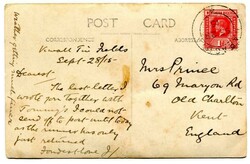 POST CARD
Kwall Tin Fields
Sept 28/15
Dearest
The last letter I
wrote you together with
Tommy's I could not
send off to port until today
as the runner has only
just returned
Fondest love
Mrs Prince
69 Maryon Rd
Old Charlton
Kent
England